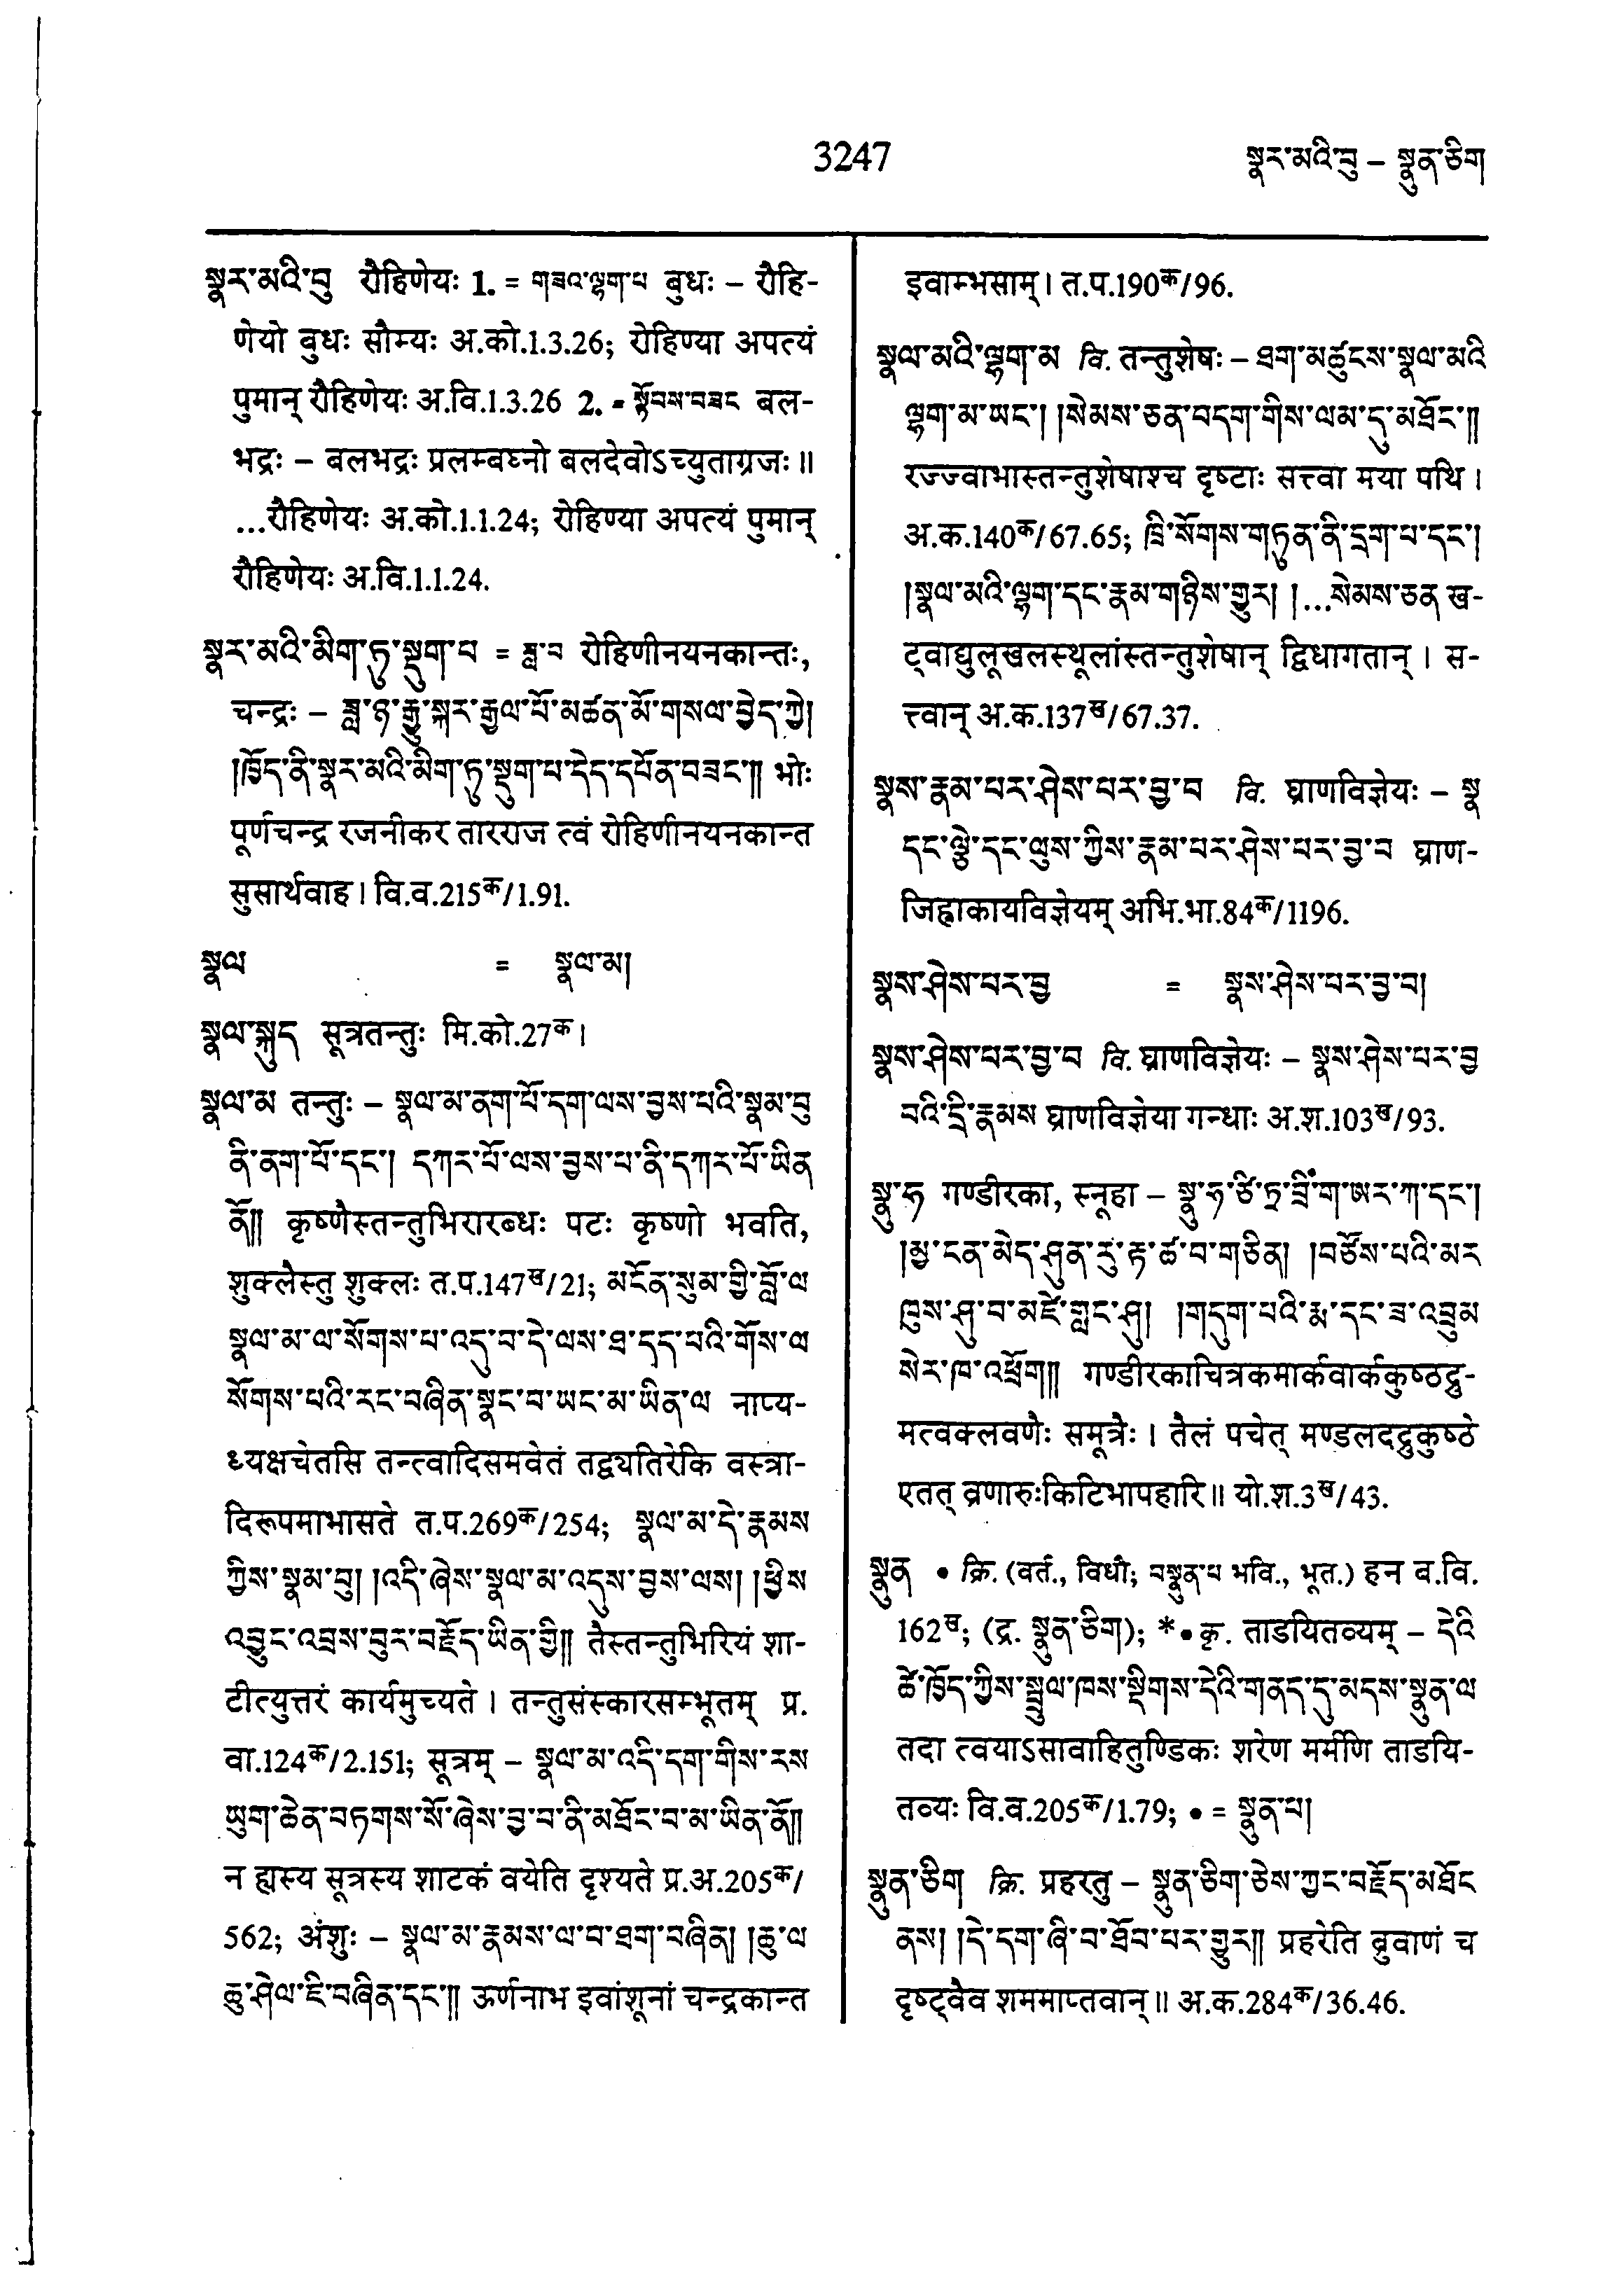 3247
སྣར་མའི་བུ – སྣུན་ཅིག
སྣར་མའི་བུ रौहिणेयः 1. = གཟའ་ལྷག་པ बुधः – रौहि-
णेयो बुधः सौम्यः अ.को.1.3.26; रोहिण्या अपत्यं
पुमान् रौहिणेयः अ.वि.1.3.26 2. = སྟོབས་བཟང बल-
भद्रः – बलभद्रः प्रलम्बघ्नो बलदेवोऽच्युताग्रजः॥
...रौहिणेयः अ.को.1.1.24; रोहिण्या अपत्यं पुमान्
रौहिणेयः अ.वि.1.1.24.
སྣར་མའི་མིག་ཏུ་སྡུག་པ = ཟླ་བ रोहिणीनयनकान्तः,
चन्द्रः – ཟླ་ཉ་རྒྱུ་སྐར་རྒྱལ་པོ་མཚན་མོ་གསལ་བྱེད་ཀྱེ།
།ཁྱོད་ནི་སྣར་མའི་མིག་ཏུ་སྡུག་པ་དེད་དཔོན་བཟང་༎ भोः
पूर्णचन्द्र रजनीकर तारराज त्वं रोहिणीनयनकान्त
सुसार्थवाह। वि.व.215क/1.91.
སྣལ = སྣལ་མ།
སྣལ་སྐུད सूत्रतन्तुः मि.को.27क।
སྣལ་མ तन्तुः – སྣལ་མ་ནག་པོ་དག་ལས་བྱས་པའི་སྣམ་བུ
ནི་ནག་པོ་དང་། དཀར་པོ་ལས་བྱས་པ་ནི་དཀར་པོ་ཡིན
ནོ༎ कृष्णैस्तन्तुभिरारब्धः पटः कृष्णो भवति,
शुक्लैस्तु शुक्लः त.प.147ख/21; མངོན་སུམ་གྱི་བློ་ལ
སྣལ་མ་ལ་སོགས་པ་འདུ་བ་དེ་ལས་ཐ་དད་པའི་གོས་ལ
སོགས་པའི་རང་བཞིན་སྣང་བ་ཡང་མ་ཡིན་ལ नाप्य-
ध्यक्षचेतसि तन्त्वादिसमवेतं तद्व्यतिरेकि वस्त्रा-
दिरूपमाभासते त.प.269क/254; སྣལ་མ་དེ་རྣམས
ཀྱིས་སྣམ་བུ། །འདི་ཞེས་སྣལ་མ་འདུས་བྱས་ལས། །ཕྱིས
འབྱུང་འབྲས་བུར་བརྗོད་ཡིན་གྱི༎ तैस्तन्तुभिरियं शा-
टीत्युत्तरं कार्यमुच्यते। तन्तुसंस्कारसम्भूतम् प्र.
वा.124क/2.151; सूत्रम् – སྣལ་མ་འདི་དག་གིས་རས
ཡུག་ཆེན་བཏགས་སོ་ཞེས་བྱ་བ་ནི་མཐོང་བ་མ་ཡིན་ནོ༎
न ह्यस्य सूत्रस्य शाटकं वयेति दृश्यते प्र.अ.205क/
562; अंशुः – སྣལ་མ་རྣམས་ལ་བ་ཐག་བཞིན། །ཆུ་ལ
ཆུ་ཤེལ་ཇི་བཞིན་དང་༎ ऊर्णनाभ इवांशूनां चन्द्रकान्त
इवाम्भसाम्। त.प.190क/96.
སྣལ་མའི་ལྷག་མ वि. तन्तुशेषः – ཐག་མཚུངས་སྣལ་མའི
ལྷག་མ་ཡང་། །སེམས་ཅན་བདག་གིས་ལམ་དུ་མཐོང་༎
रज्ज्वाभास्तन्तुशेषाश्च दृष्टाः सत्त्वा मया पथि।
अ.क.140क/67.65; ཁྲི་སོགས་གཏུན་ནི་དྲག་པ་དང་།
།སྣལ་མའི་ལྷག་དང་རྣམ་གཉིས་གྱུར། །...སེམས་ཅན ख-
ट्वाद्युलूखलस्थूलांस्तन्तुशेषान् द्विधागतान्। स-
त्त्वान् अ.क.137ख/67.37.
སྣས་རྣམ་པར་ཤེས་པར་བྱ་བ वि. घ्राणविज्ञेयः – སྣ
དང་ལྕེ་དང་ལུས་ཀྱིས་རྣམ་པར་ཤེས་པར་བྱ་བ घ्राण-
जिह्वाकायविज्ञेयम् अभि.भा.84क/1196.
སྣས་ཤེས་པར་བྱ = སྣས་ཤེས་པར་བྱ་བ།
སྣས་ཤེས་པར་བྱ་བ वि. घ्राणविज्ञेयः – སྣས་ཤེས་པར་བྱ
བའི་དྲི་རྣམས घ्राणविज्ञेया गन्धाः अ.श.103ख/93.
སྣུ་ཧ गण्डीरका, स्नूहा – སྣུ་ཧ་ཙི་ཏྲ་བྲིཾ་ག་ཨར་ཀ་དང་།
།མྱ་ངན་མེད་ཤུན་རུ་རྟ་ཚ་བ་གཅིན། །བཙོས་པའི་མར
ཁུས་ཤུ་བ་མཛེ་གླང་ཤུ། །གདུག་པའི་རྨ་དང་ཟ་འབྲུམ
སེར་ཁ་འཕྲོག༎ गण्डीरकाचित्रकमार्कवार्ककुष्ठद्रु-
मत्वक्लवणैः समूत्रैः। तैलं पचेत् मण्डलदद्रुकुष्ठे
एतत् व्रणारुःकिटिभापहारि॥ यो.श.3ख/43.
སྣུན • क्रि. (वर्त., विधौ; བསྣུན་པ भवि., भूत.) हन व.वि.
162ख; (द्र. སྣུན་ཅིག); *• कृ. ताडयितव्यम् – དེའི
ཚེ་ཁྱོད་ཀྱིས་སྦྲུལ་ཁས་སྡིགས་དེའི་གནད་དུ་མདས་སྣུན་ལ
तदा त्वयाऽसावाहितुण्डिकः शरेण मर्मणि ताडयि-
तव्यः वि.व.205क/1.79; • = སྣུན་པ།
སྣུན་ཅིག क्रि. प्रहरतु – སྣུན་ཅིག་ཅེས་ཀྱང་བརྗོད་མཐོང
ནས། །དེ་དག་ཞི་བ་ཐོབ་པར་གྱུར༎ प्रहरेति ब्रुवाणं च
दृष्ट्वैव शममाप्तवान्॥ अ.क.284क/36.46.